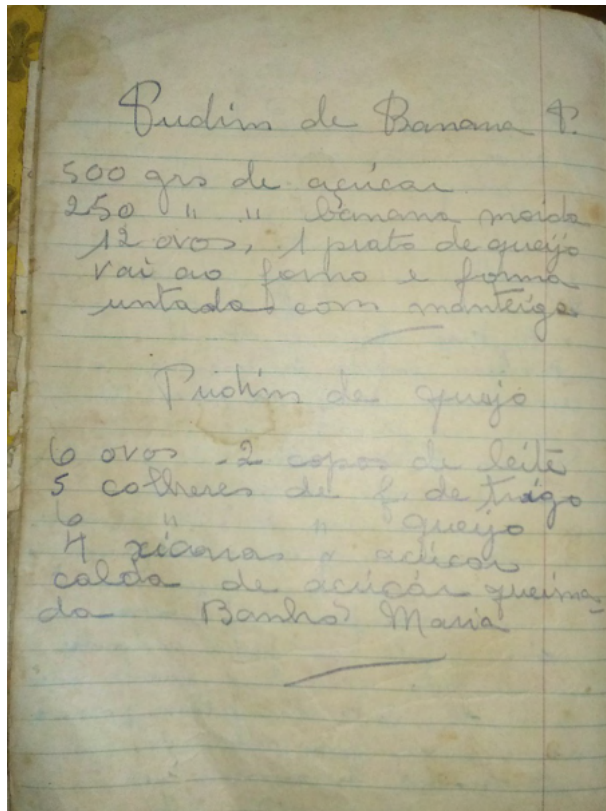 Pudim de Banana P.
500 grs de açúcar
250 " " banana moida
12 ovos, 1 prato de queijo
vai ao forno e forma
untada com manteiga
Pudim de queijo
6 ovos - 2 copos de leite
5 colheres de f. de trigo
6 " " queijo
4 xicaras " açúcar
calda de açúcár queima-
da Banho Maria